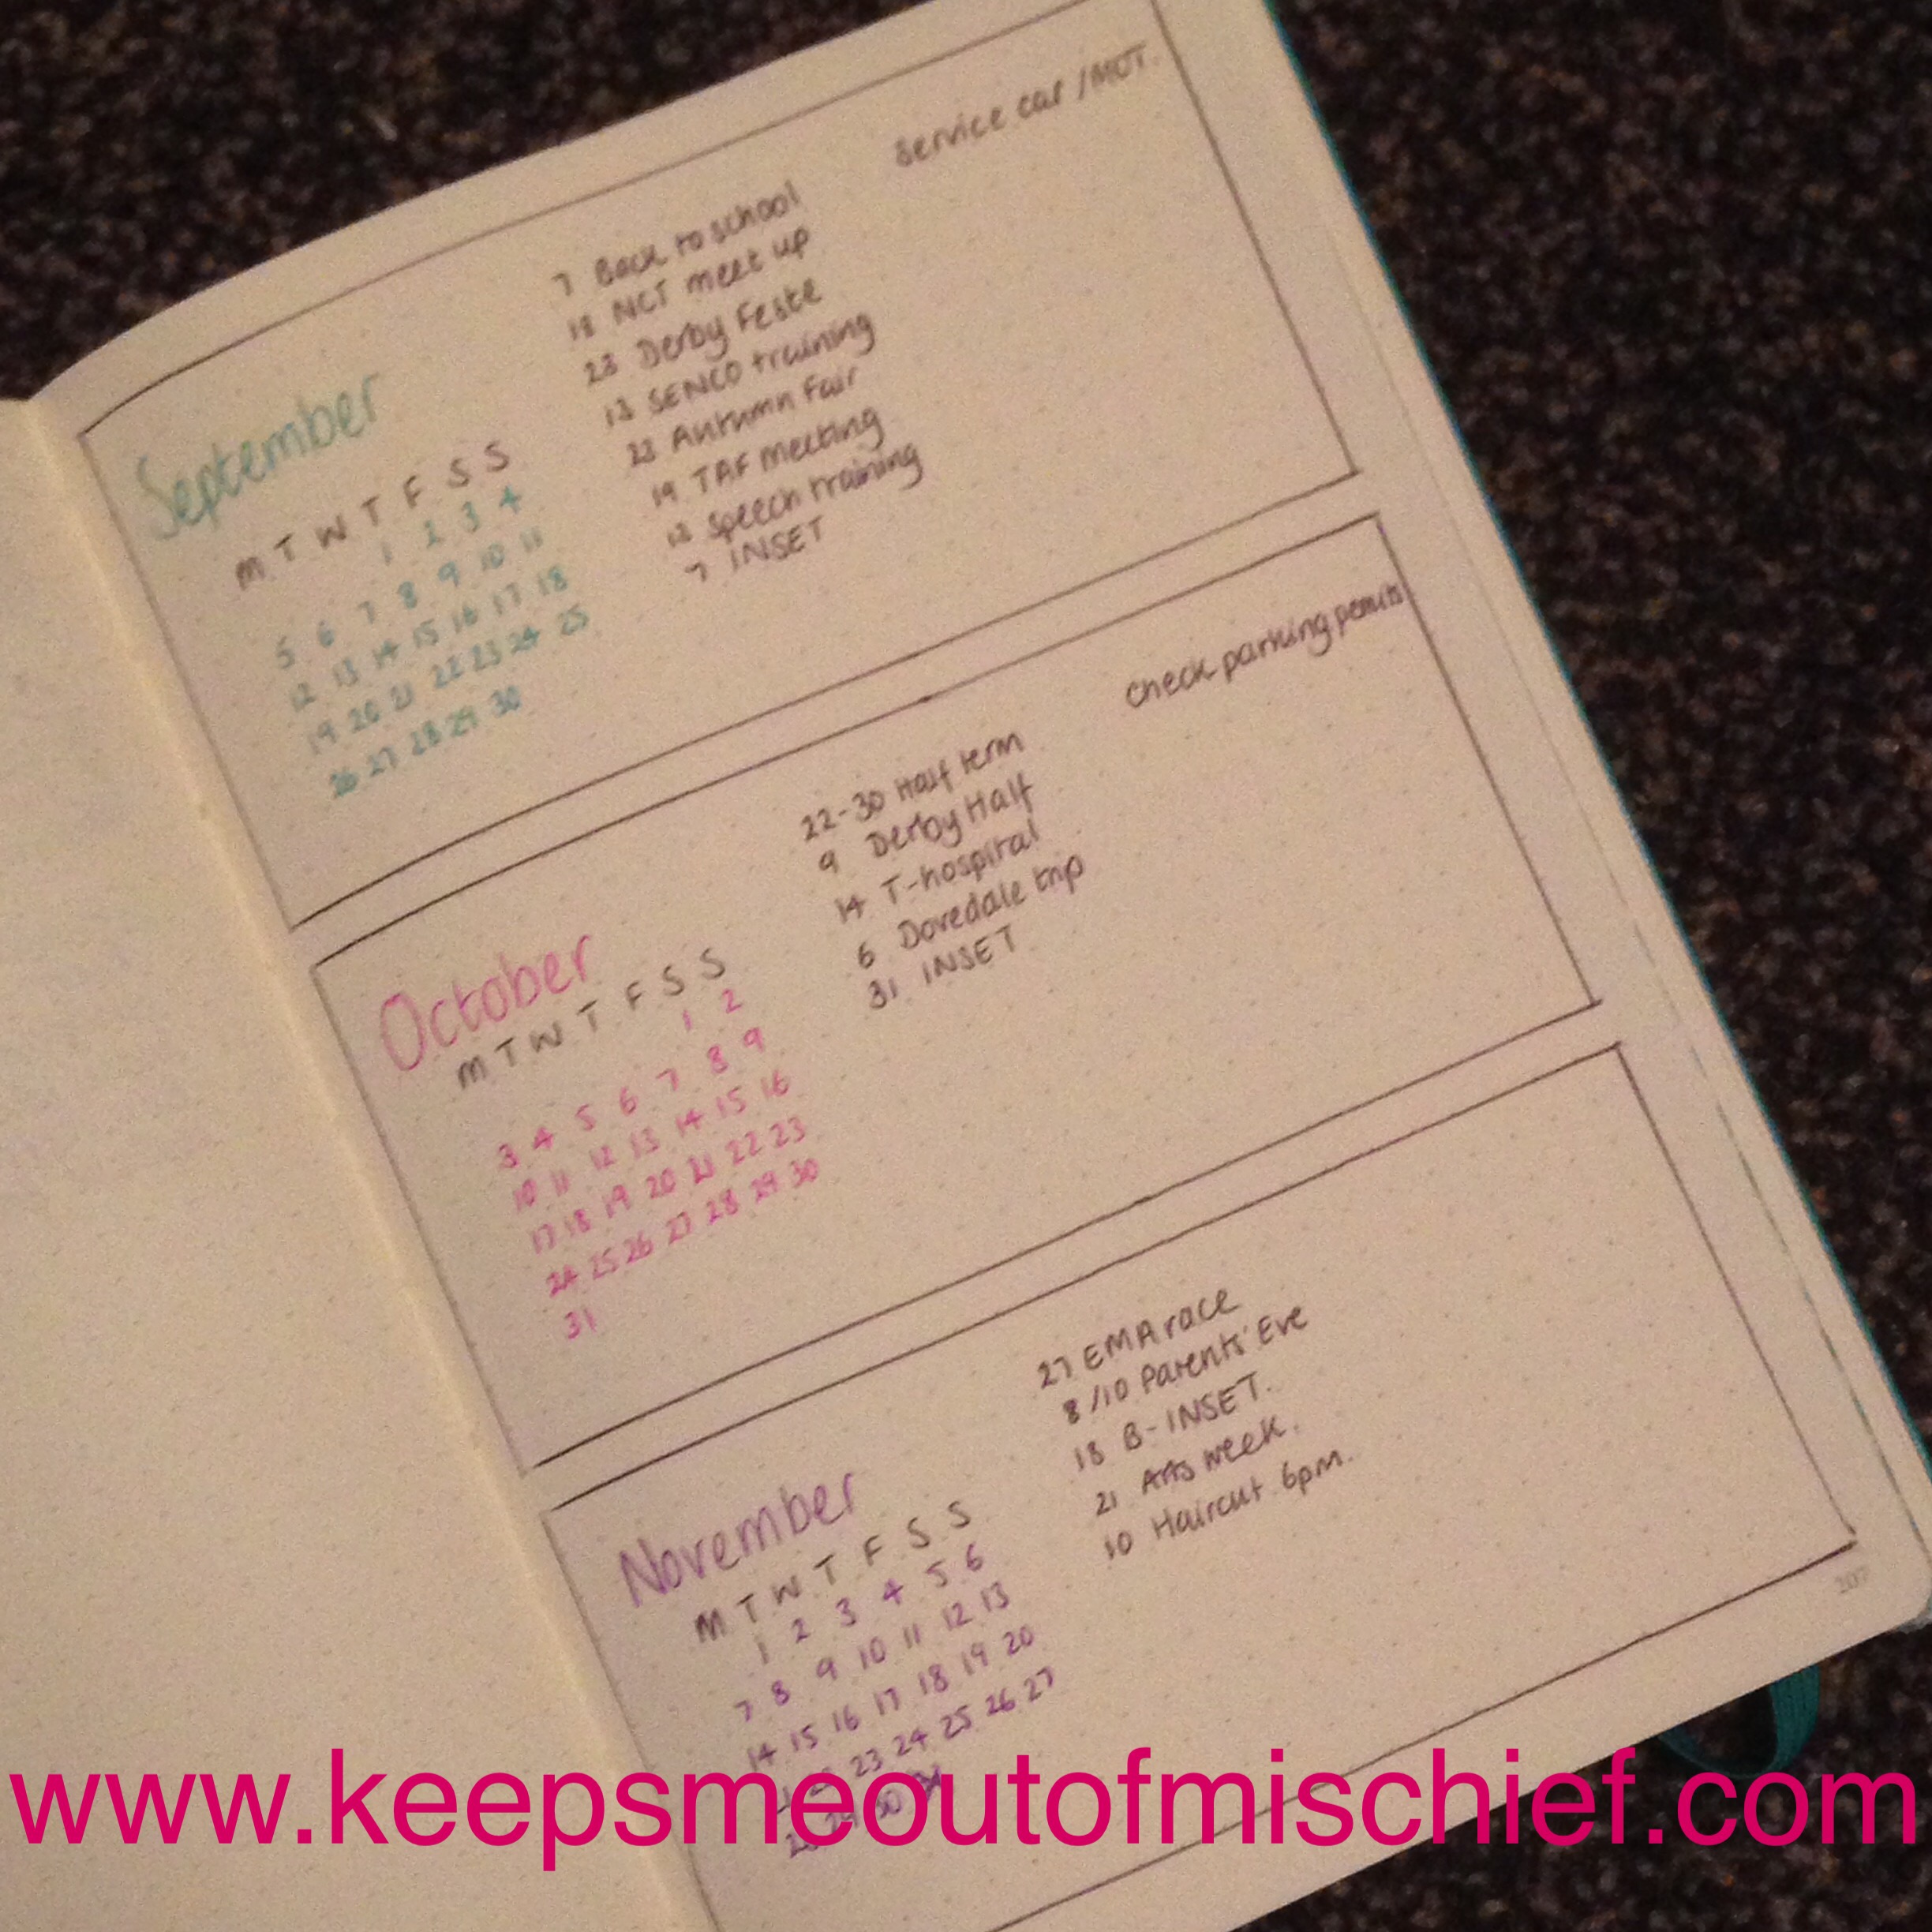 September
M T W T F S S
1 2 3 4
5 6 7 8 9 10 11
12 13 14 15 16 17 18
19 20 21 22 23 24 25
26 27 28 29 30
7 Back to school
18 NCT meet up
23 Derby Feste
13 SENCO training
23 Autumn Fair
19 TAF meeting
12 Speech training
7 INSET
service car / MOT.
October
M T W T F S S
1 2
3 4 5 6 7 8 9
10 11 12 13 14 15 16
17 18 19 20 21 22 23
24 25 26 27 28 29 30
31
22-30 Half term
9 Derby Half
14 T-hospital
6 Dovedale trip
31 INSET
check parking permits
November
M T W T F S S
1 2 3 4 5 6
7 8 9 10 11 12 13
14 15 16 17 18 19 20
21 22 23 24 25 26 27
28 29 30
27 EMA race
8/10 Parents' Eve
18 B-INSET.
21 Arts week.
10 Haircut 6pm.
207
www.keepsmeoutofmischief.com